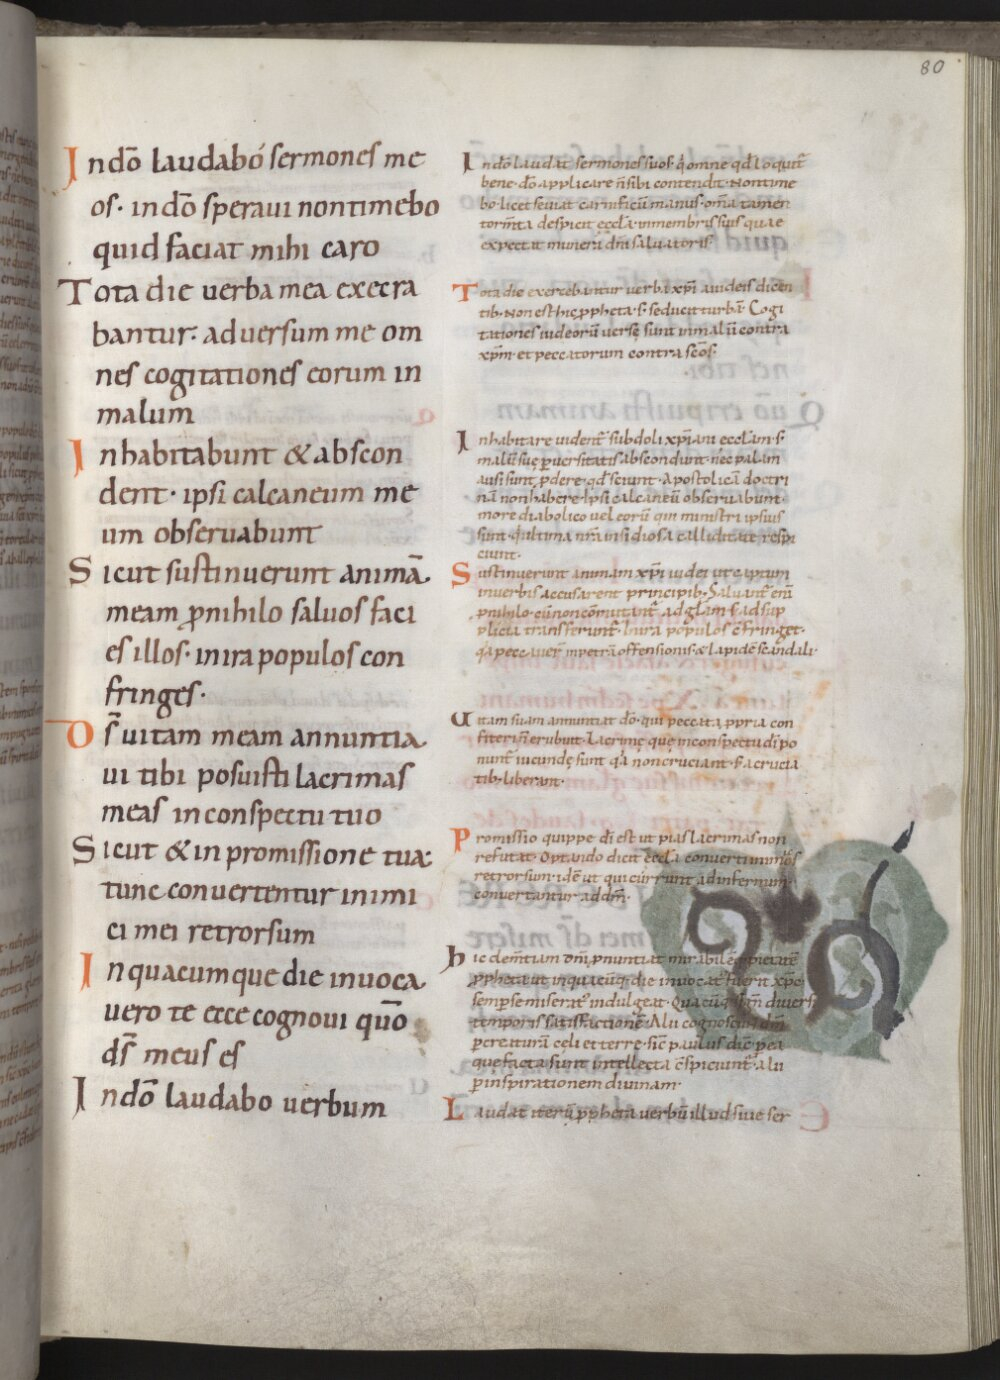 80
Indō laudabó sermones me
os· indō speraui nontimebo
quid faciat mihi caro
Tota die uerba mea execra
bantur· aduersum me om
nes cogitationes eorum in
malum
Inhabitabunt & abscon
dent· ipsi calcaneum me
um obseruabunt
Sicut sustinuerunt animā
meam ꝓnihilo saluos faci
es illos· inira populos con
fringes·
Dš uitam meam annuntia
ui tibi posuisti lacrimas
meas inconspectu tuo
Sicut & in promissione tua·
tunc conuertentur inimi
ci mei retrorsum
Inquacumque die inuoca
uero te ecce cognoui quō
dš meus es
Indō laudabo uerbum
Indō laudat sermones suos· q omne qd loquit
bene· dō applicare ñ sibi contendit· Nontime
bo licet seuiat carnificū manus· om̄a tamen
torm̄ta despicit eccła inmembris suis quae
expectat munera dn̄i saluatoris·
Tota die execrebantur uerba xp̄i a iudeis dicen
tib· Non est hic ꝓpheta· s· seducit turbā· Cogi
tationes iudeorū uersę sunt in malū contra
xp̄m· et peccatorum contra sc̄os·
Inhabitare uident subdoli xp̄iani eccłam· s·
malū suę ꝑuersitatis abscondunt· nec palam
ausi sunt ꝓdere· qd sciunt· apostolicā doctri
nā non habere· Ipsi calcaneū obseruabunt·
more diabolico uel eorū qui ministri ipsius
sunt· qui ultima nr̄m insidiosa calliditate respi
ciunt·
Sustinuerunt animam xp̄i iudei ut captum
inuerbis accusarent principib· Saluant eni
ꝓnihilo· cū non cōmutant· ad głam· s· ad sup
plicia transferunt· In ira populos c̄fringet·
qa peccauer in petrā offensionis· & lapidē scandali·
Uitam suam annuntiat dō· qui peccata ꝓpria con
fiteri ñ erubuit· Lacrimę quę inconspectu dī po
nunt iucundę sunt qa non cruciant· s· a crucia
tib· liberant·
Promissio quippe dī est ut pias lacrimas non
refutat· Optando dicit eccła conuerti inimicos
retrorsum· idē ut qui currunt ad infernum·
conuertantur ad dn̄m·
hic clem̄tiam dn̄i ꝓnuntiat mirabilē pietatē
ꝓpheta ut inquacūq· die inuocat fuerit xp̄c
semp se miserat indulgeat· Quacūq· diuersi
temporis satisfactionē· Alii cognoscunt dm̄
ꝑcreaturā celi et terre· sic paulus dic· ꝑea
que facta sunt intellecta c̄spiciunt· alii
ꝑinspirationem diuinam·
Laudat iterū ꝓpheta uerbū illud siue ser